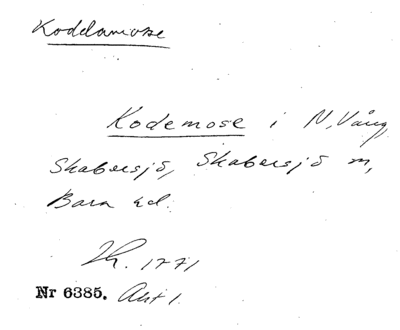 Koddamose
Kodemose i N. Vång,
Skabersjö, Skabersjö sn,
Bara hd.
Lh. 1771
Nr 6385. Akt 1.